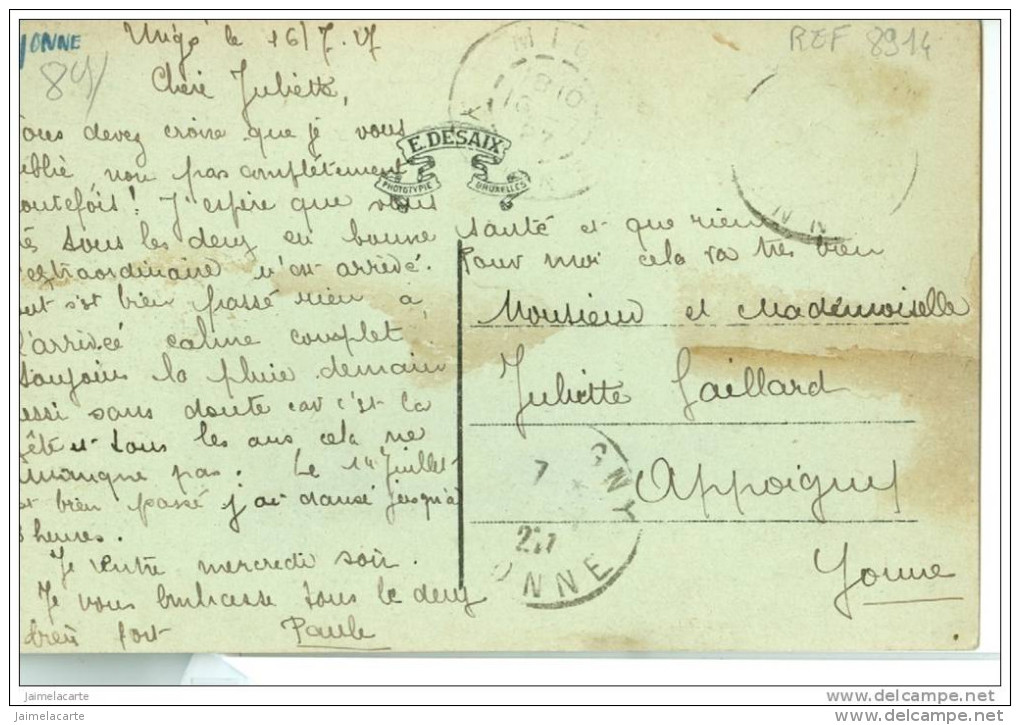 YONNE
89/
REF 8914
Migé le 16/7.27
Chère Juliette,
Vous devez croire que je vous
oublié non pas complètement
toutefois! J'espère que vous
êtes tous les deux en bonne
santé et que rien
d'extraordinaire n'est arrivé.
Pour moi cela va très bien
tout s'est bien passé rien à
l'arrivée calme complet
Toujours la pluie demain
aussi sans doute car c'est la
fête et tous les ans cela ne
manque pas. Le 14 Juillet
est bien passé j'ai dansé jusqu'à
3 heures.
Je rentre mercredi soir.
Je vous embrasse tous le deux
bien fort Paule
E. DESAIX
PHOTOTYPIE
BRUXELLES
Monsieur et Mademoiselle
Juliette Gaillard
Appoigny
Yonne
GNY
7
27
YONNE
jaimelacarte
www.delcampe.net
jaimelacarte
www.delcampe.net